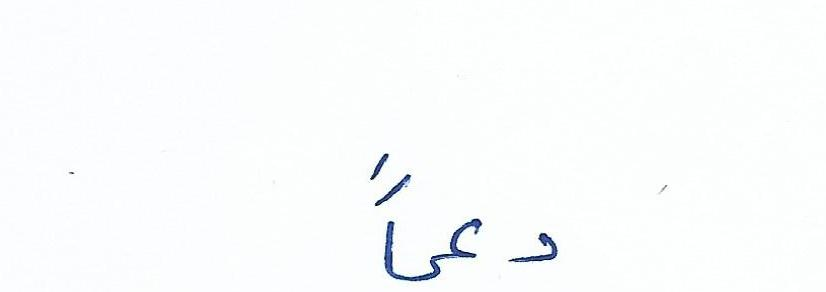 دعماً